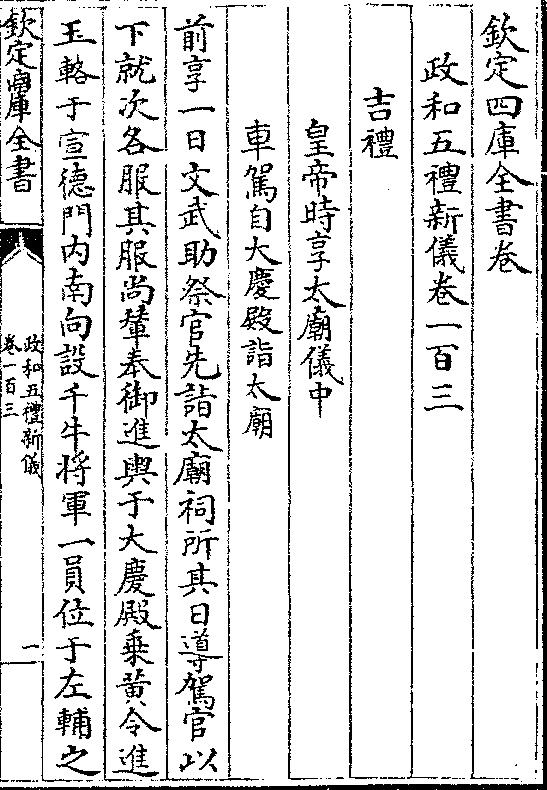 欽定四庫全書卷
政和五禮新儀卷一百三
吉禮
皇帝時享太廟儀中
車駕自大慶殿詣太廟
前享一日文武助祭官先詣太廟祠所其日導駕官以
下就次各服其服尚輦奉御進輿于大慶殿乗黄令進
玉輅于宣德門内南向設千牛將軍一員位于左輔之
欽定四庫全書
政和五禮新儀
卷一百三
一